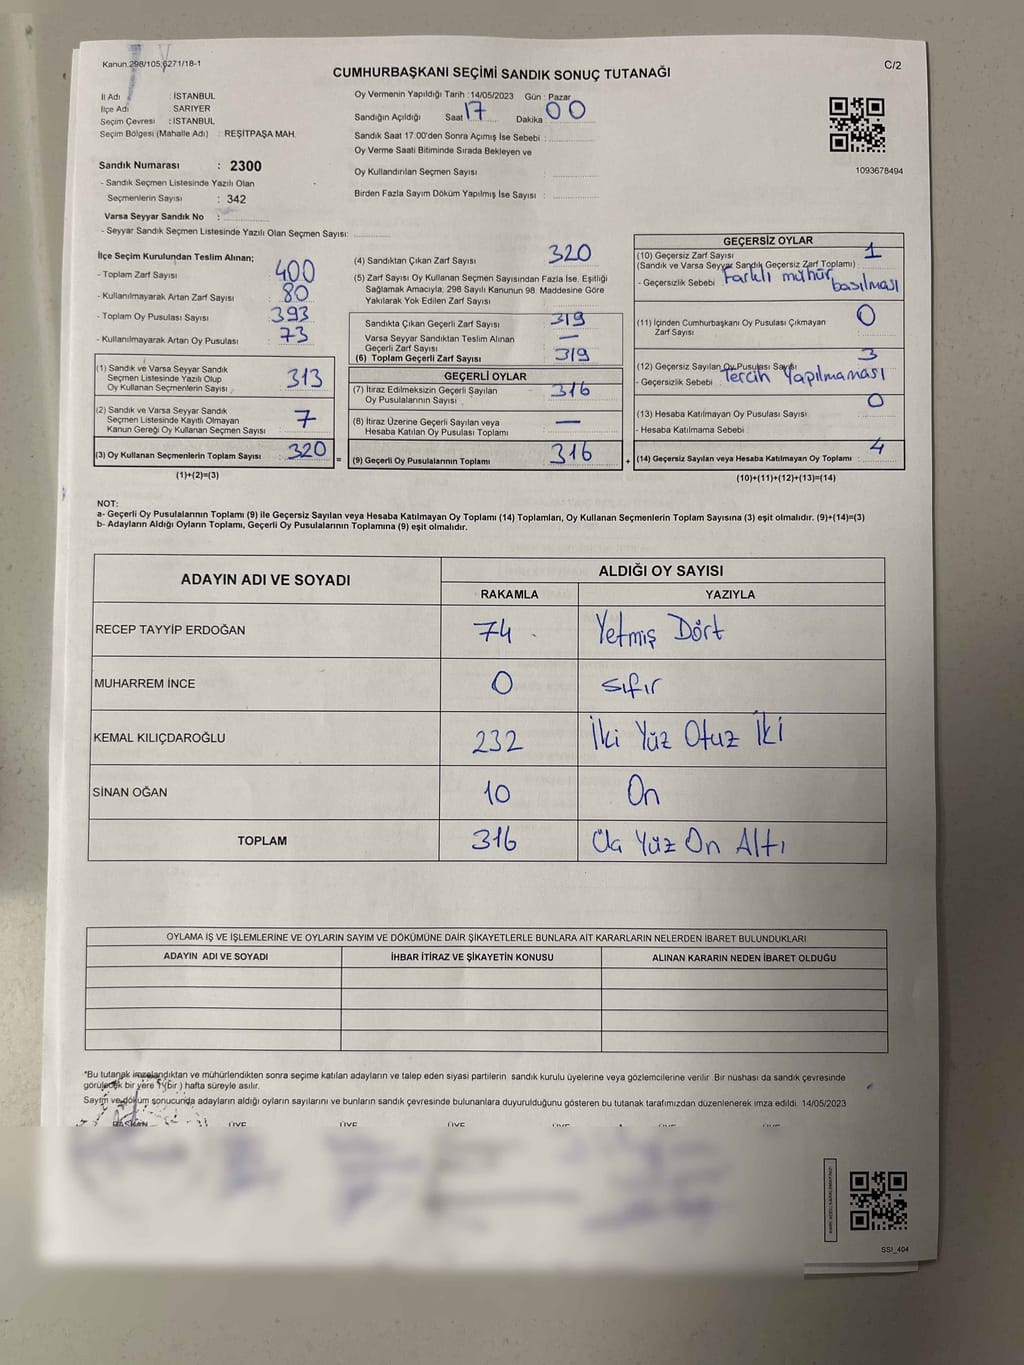 Kanun.298/105,6271/18-1
C/2
CUMHURBAŞKANI SEÇİMİ SANDIK SONUÇ TUTANAĞI
İl Adı : İSTANBUL
İlçe Adı : SARIYER
Seçim Çevresi : İSTANBUL
Seçim Bölgesi (Mahalle Adı) : REŞİTPAŞA MAH.
Sandık Numarası : 2300
- Sandık Seçmen Listesinde Yazılı Olan
Seçmenlerin Sayısı : 342
Varsa Seyyar Sandık No :
- Seyyar Sandık Seçmen Listesinde Yazılı Olan Seçmen Sayısı:
Oy Vermenin Yapıldığı Tarih :14/05/2023 Gün : Pazar
Sandığın Açıldığı Saat 17 Dakika 00
Sandık Saat 17:00'den Sonra Açımış İse Sebebi :
Oy Verme Saati Bitiminde Sırada Bekleyen ve
Oy Kullandırılan Seçmen Sayısı :
Birden Fazla Sayım Döküm Yapılmış İse Sayısı :
1093678494
İlçe Seçim Kurulundan Teslim Alınan;
- Toplam Zarf Sayısı : 400
- Kullanılmayarak Artan Zarf Sayısı : 80
- Toplam Oy Pusulası Sayısı : 393
- Kullanılmayarak Artan Oy Pusulası : 73
(1) Sandık ve Varsa Seyyar Sandık
Seçmen Listesinde Yazılı Olup
Oy Kullanan Seçmenlerin Sayısı : 313
(2) Sandık ve Varsa Seyyar Sandık
Seçmen Listesinde Kayıtlı Olmayan
Kanun Gereği Oy Kullanan Seçmen Sayısı : 7
(3) Oy Kullanan Seçmenlerin Toplam Sayısı : 320
(1)+(2)=(3)
(4) Sandıktan Çıkan Zarf Sayısı : 320
(5) Zarf Sayısı Oy Kullanan Seçmen Sayısından Fazla İse, Eşitliği
Sağlamak Amacıyla; 298 Sayılı Kanunun 98. Maddesine Göre
Yakılarak Yok Edilen Zarf Sayısı :
Sandıkta Çıkan Geçerli Zarf Sayısı : 319
Varsa Seyyar Sandıktan Teslim Alınan
Geçerli Zarf Sayısı : —
(6) Toplam Geçerli Zarf Sayısı : 319
GEÇERLİ OYLAR
(7) İtiraz Edilmeksizin Geçerli Sayılan
Oy Pusulalarının Sayısı : 316
(8) İtiraz Üzerine Geçerli Sayılan veya
Hesaba Katılan Oy Pusulası Toplamı : —
= (9) Geçerli Oy Pusulalarının Toplamı : 316
GEÇERSİZ OYLAR
(10) Geçersiz Zarf Sayısı : 1
(Sandık ve Varsa Seyyar Sandık Geçersiz Zarf Toplamı)
- Geçersizlik Sebebi : Farklı mühür
basılması
(11) İçinden Cumhurbaşkanı Oy Pusulası Çıkmayan
Zarf Sayısı : 0
(12) Geçersiz Sayılan Oy Pusulası Sayısı : 3
- Geçersizlik Sebebi : Tercih Yapılmaması
(13) Hesaba Katılmayan Oy Pusulası Sayısı : 0
- Hesaba Katılmama Sebebi :
+ (14) Geçersiz Sayılan veya Hesaba Katılmayan Oy Toplamı : 4
(10)+(11)+(12)+(13)=(14)
NOT:
a- Geçerli Oy Pusulalarının Toplamı (9) ile Geçersiz Sayılan veya Hesaba Katılmayan Oy Toplamı (14) Toplamları, Oy Kullanan Seçmenlerin Toplam Sayısına (3) eşit olmalıdır. (9)+(14)=(3)
b- Adayların Aldığı Oyların Toplamı, Geçerli Oy Pusulalarının Toplamına (9) eşit olmalıdır.
ADAYIN ADI VE SOYADI
ALDIĞI OY SAYISI
RAKAMLA YAZIYLA
RECEP TAYYİP ERDOĞAN 74 Yetmiş Dört
MUHARREM İNCE 0 sıfır
KEMAL KILIÇDAROĞLU 232 İki Yüz Otuz İki
SİNAN OĞAN 10 On
TOPLAM 316 Üç Yüz On Altı
OYLAMA İŞ VE İŞLEMLERİNE VE OYLARIN SAYIM VE DÖKÜMÜNE DAİR ŞİKAYETLERLE BUNLARA AİT KARARLARIN NELERDEN İBARET BULUNDUKLARI
ADAYIN ADI VE SOYADI İHBAR İTİRAZ VE ŞİKAYETİN KONUSU ALINAN KARARIN NEDEN İBARET OLDUĞU
*Bu tutanak imzalandıktan ve mühürlendikten sonra seçime katılan adayların ve talep eden siyasi partilerin sandık kurulu üyelerine veya gözlemcilerine verilir. Bir nüshası da sandık çevresinde
görülecek bir yere 1 (bir) hafta süreyle asılır.
Sayım ve döküm sonucunda adayların aldığı oyların sayılarını ve bunların sandık çevresinde bulunanlara duyurulduğunu gösteren bu tutanak tarafımızdan düzenlenerek imza edildi. 14/05/2023
BAŞKAN ÜYE ÜYE ÜYE ÜYE ÜYE
SSI_404